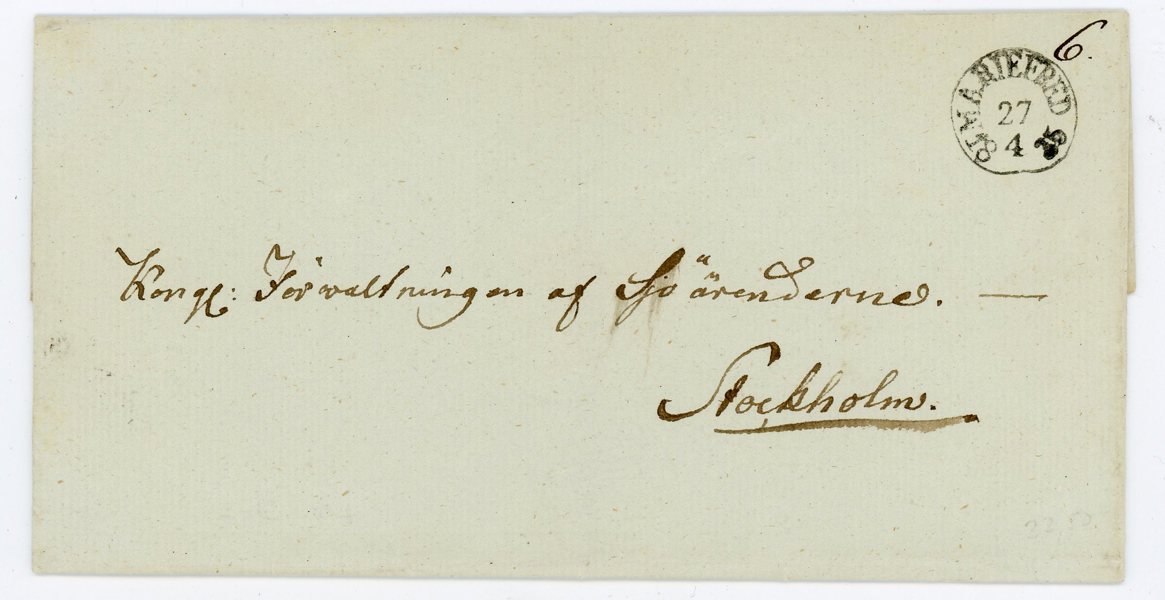 6.
MARIEFRED
27
4
Kongl: Förwaltningen af Sjöärenderne. —
Stockholm.
22,50